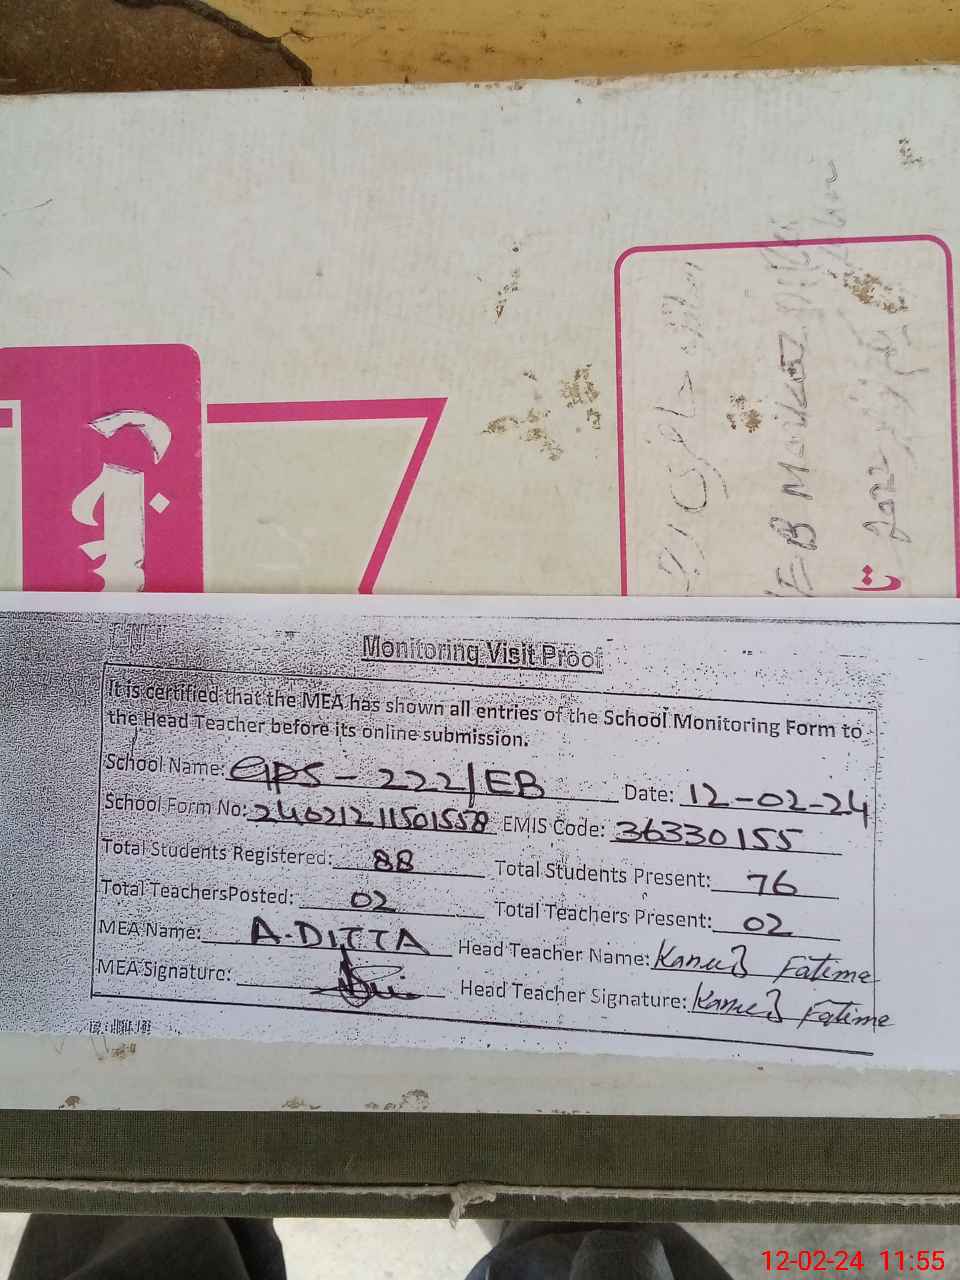 EB Markaz
تا
Monitoring Visit Proof
It is certified that the MEA has shown all entries of the School Monitoring Form to
the Head Teacher before its online submission.
School Name: GPS - 222/EB Date: 12-02-24
School Form No: 24021211501558 EMIS Code: 36330155
Total Students Registered: 88 Total Students Present: 76
Total TeachersPosted: 02 Total Teachers Present: 02
MEA Name: A-DITTA Head Teacher Name: Fatime
MEA Signature: Head Teacher Signature: Fatime
12-02-24 11:55